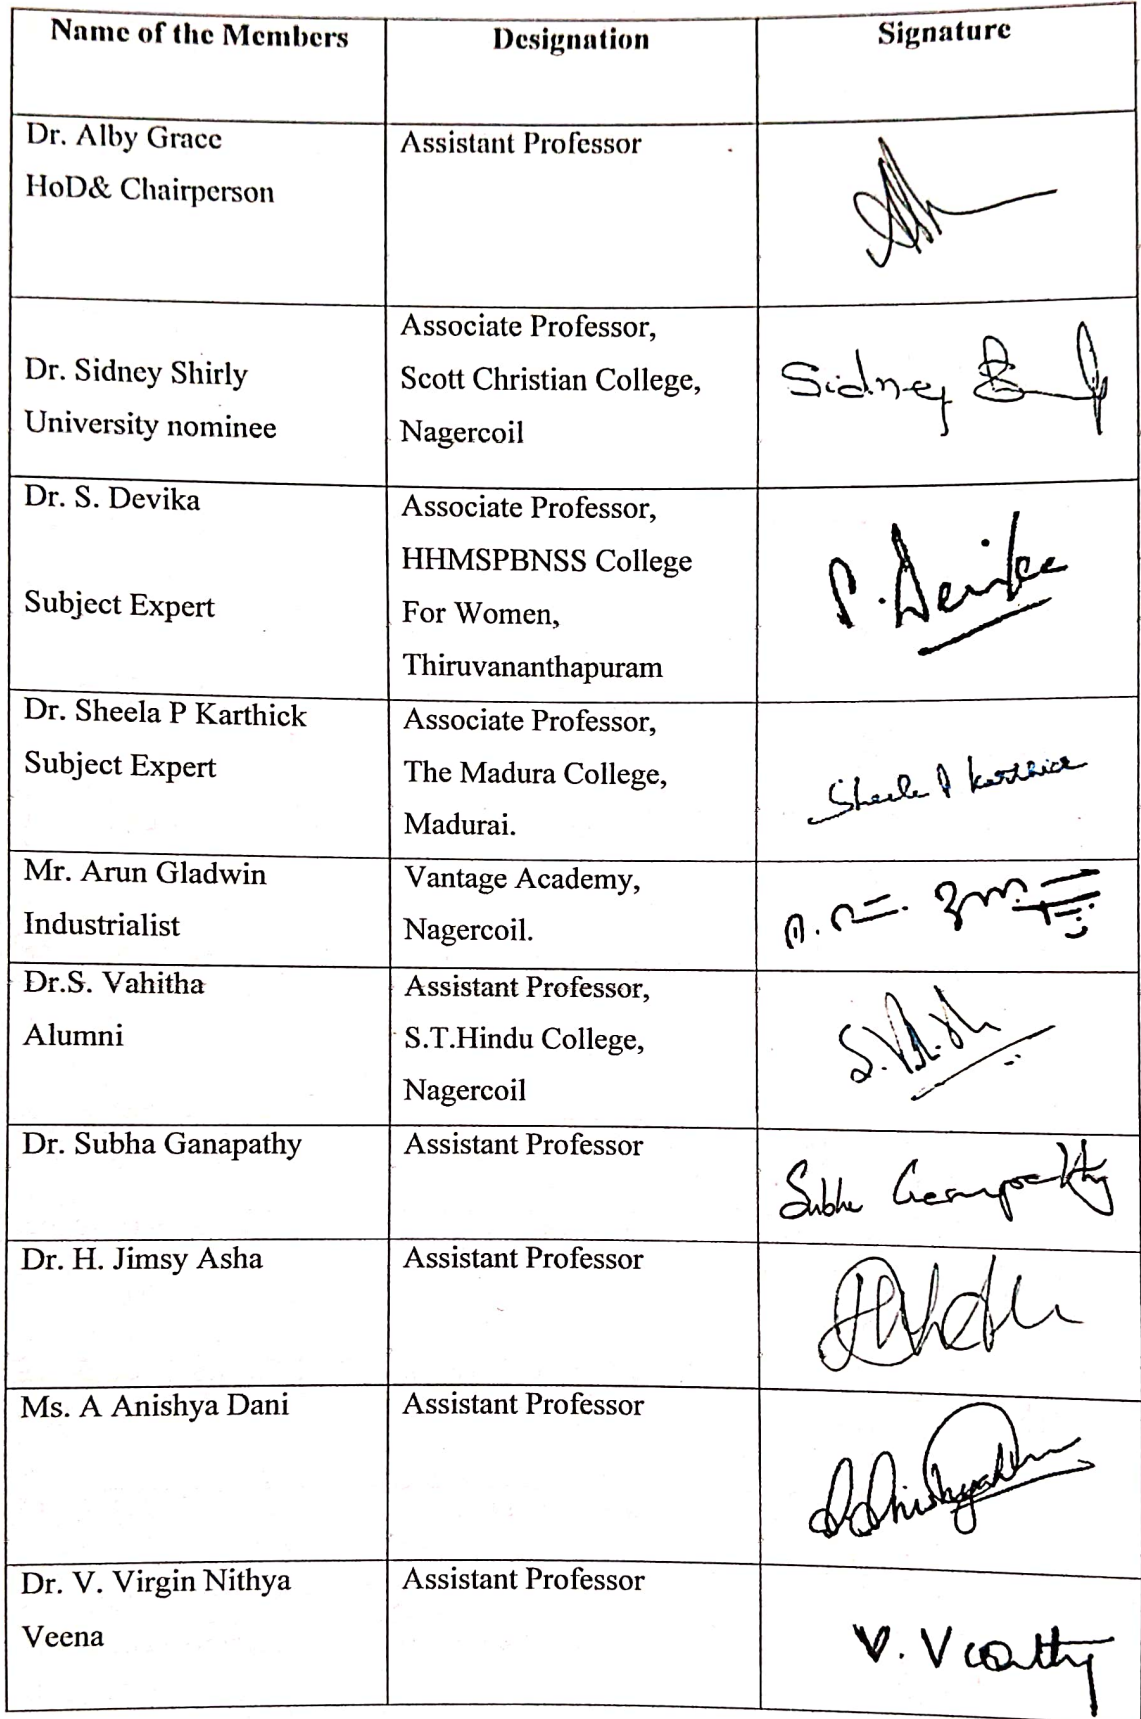 Name of the Members
Designation
Signature
Dr. Alby Grace
HoD& Chairperson
Assistant Professor
Dr. Sidney Shirly
University nominee
Associate Professor,
Scott Christian College,
Nagercoil
Sidney
Dr. S. Devika
Subject Expert
Associate Professor,
HHMSPBNSS College
For Women,
Thiruvananthapuram
Dr. Sheela P Karthick
Subject Expert
Associate Professor,
The Madura College,
Madurai.
Sheela P Karthick
Mr. Arun Gladwin
Industrialist
Vantage Academy,
Nagercoil.
Dr.S. Vahitha
Alumni
Assistant Professor,
S.T.Hindu College,
Nagercoil
Dr. Subha Ganapathy
Assistant Professor
Subha Ganapathy
Dr. H. Jimsy Asha
Assistant Professor
Ms. A Anishya Dani
Assistant Professor
Dr. V. Virgin Nithya
Veena
Assistant Professor